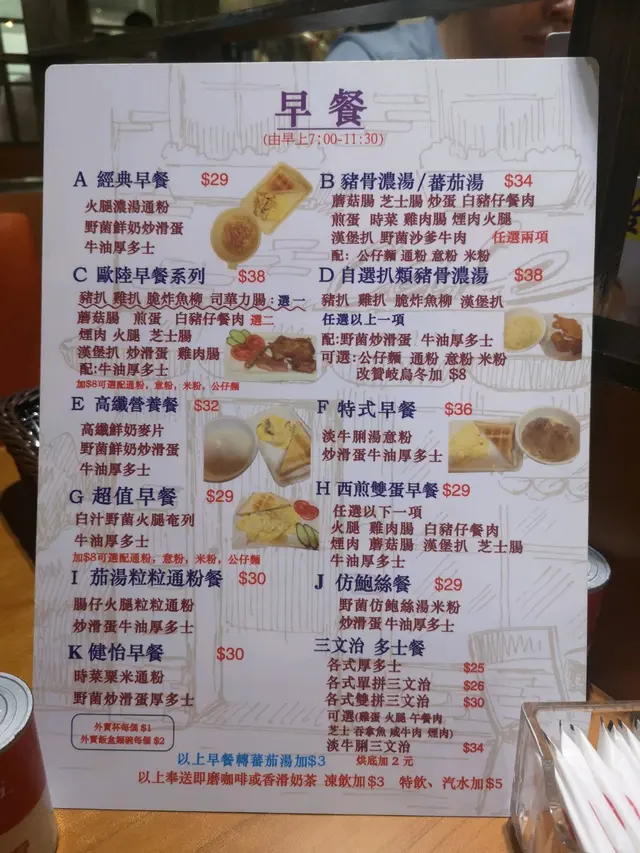 早餐
(由早上7:00-11:30)
A 經典早餐 $29
火腿濃湯通粉
野菌鮮奶炒滑蛋
牛油厚多士
B 豬骨濃湯/蕃茄湯 $34
蘑菇腸 芝士腸 炒蛋 白豬仔餐肉
煎蛋 時菜 雞肉腸 煙肉火腿
漢堡扒 野菌沙爹牛肉 任選兩項
配: 公仔麵 通粉 意粉 米粉
C 歐陸早餐系列 $38
豬扒 雞扒 脆炸魚柳 司華力腸：選一
蘑菇腸 煎蛋 白豬仔餐肉 選二
煙肉 火腿 芝士腸
漢堡扒 炒滑蛋 雞肉腸
配:牛油厚多士
加$8可選配通粉，意粉，米粉，公仔麵
D 自選扒類豬骨濃湯 $38
豬扒 雞扒 脆炸魚柳 漢堡扒
任選以上一項
配:野菌炒滑蛋 牛油厚多士
可選:公仔麵 通粉 意粉 米粉
改贊岐烏冬加 $8
E 高纖營養餐 $32
高纖鮮奶麥片
野菌鮮奶炒滑蛋
牛油厚多士
F 特式早餐 $36
淡牛脷湯意粉
炒滑蛋牛油厚多士
G 超值早餐 $29
白汁野菌火腿奄列
牛油厚多士
加$8可選配通粉，意粉，米粉，公仔麵
H 西煎雙蛋早餐 $29
任選以下一項
火腿 雞肉腸 白豬仔餐肉
煙肉 蘑菇腸 漢堡扒 芝士腸
牛油厚多士
I 茄湯粒粒通粉餐 $30
腸仔火腿粒粒通粉
炒滑蛋牛油厚多士
J 仿鮑絲餐 $29
野菌仿鮑絲湯米粉
炒滑蛋牛油厚多士
K 健怡早餐 $30
時菜粟米通粉
野菌炒滑蛋厚多士
三文治 多士餐
各式厚多士 $25
各式單拼三文治 $26
各式雙拼三文治 $30
可選(雞蛋 火腿 午餐肉
芝士 吞拿魚 咸牛肉 煙肉)
淡牛脷三文治 $34
烘底加 2 元
外賣杯每個 $1
外賣飯盒麵碗每個 $2
以上早餐轉蕃茄湯加$3
以上奉送即磨咖啡或香滑奶茶 凍飲加$3 特飲、汽水加$5